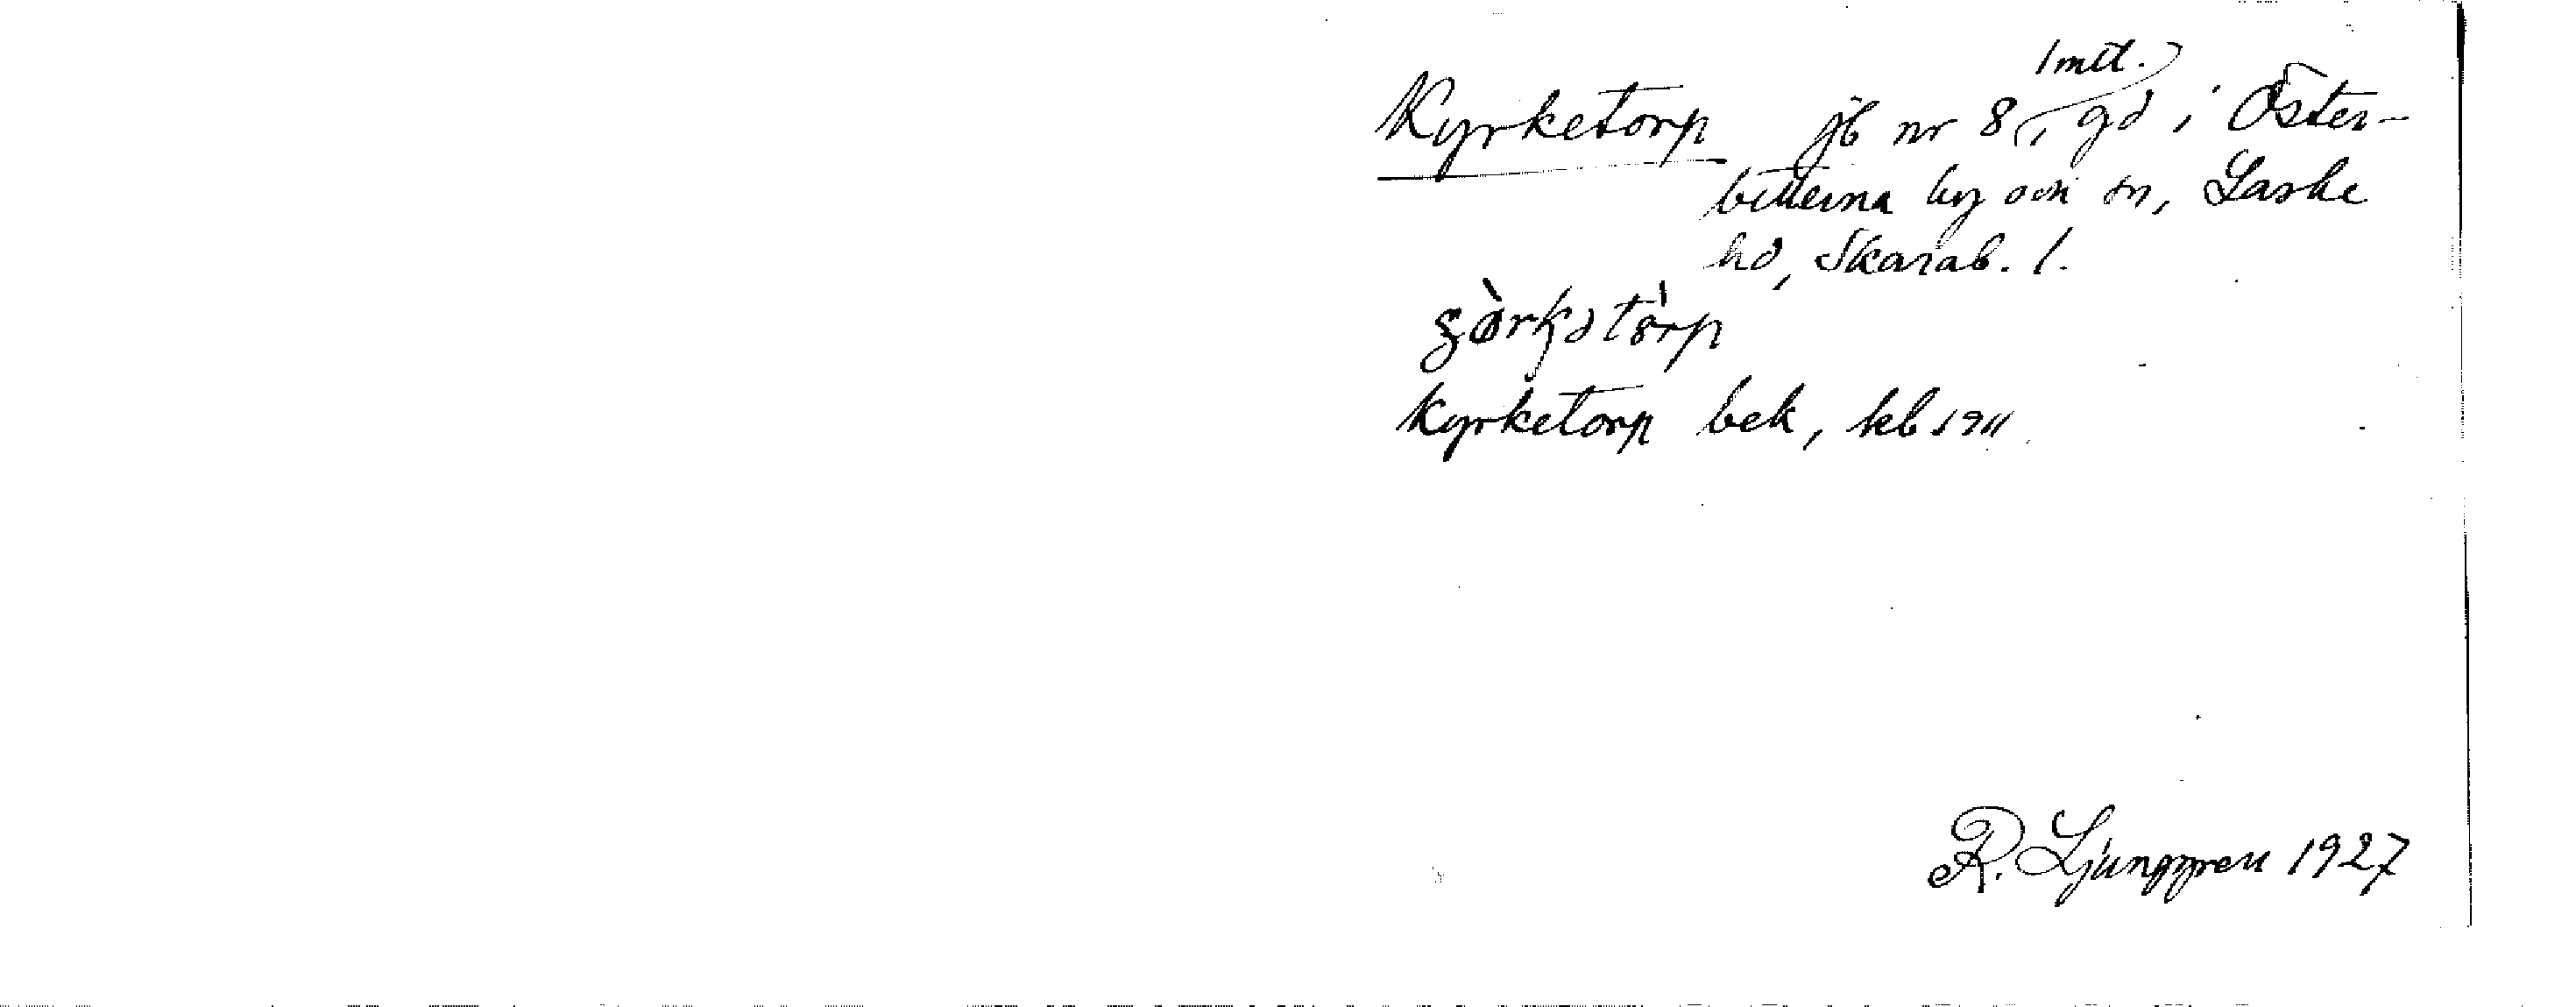 Kyrketorp jb nr 8, 1 mtl. gd i Öster-
bitterna by och sn, Laske
hd, Skarab. l.
Kyrketorp bek, kb 1911
R. Ljunggren 1927